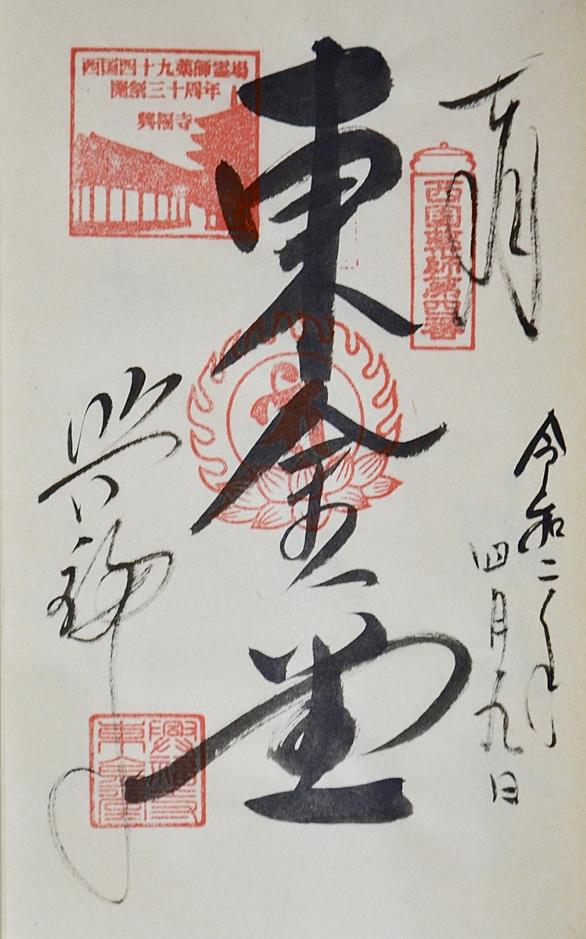 奉拝
西国薬師第四番
令和二年
四月九日
東金堂
西国四十九薬師霊場
開創三十周年
興福寺
興福寺
興福寺
東金堂